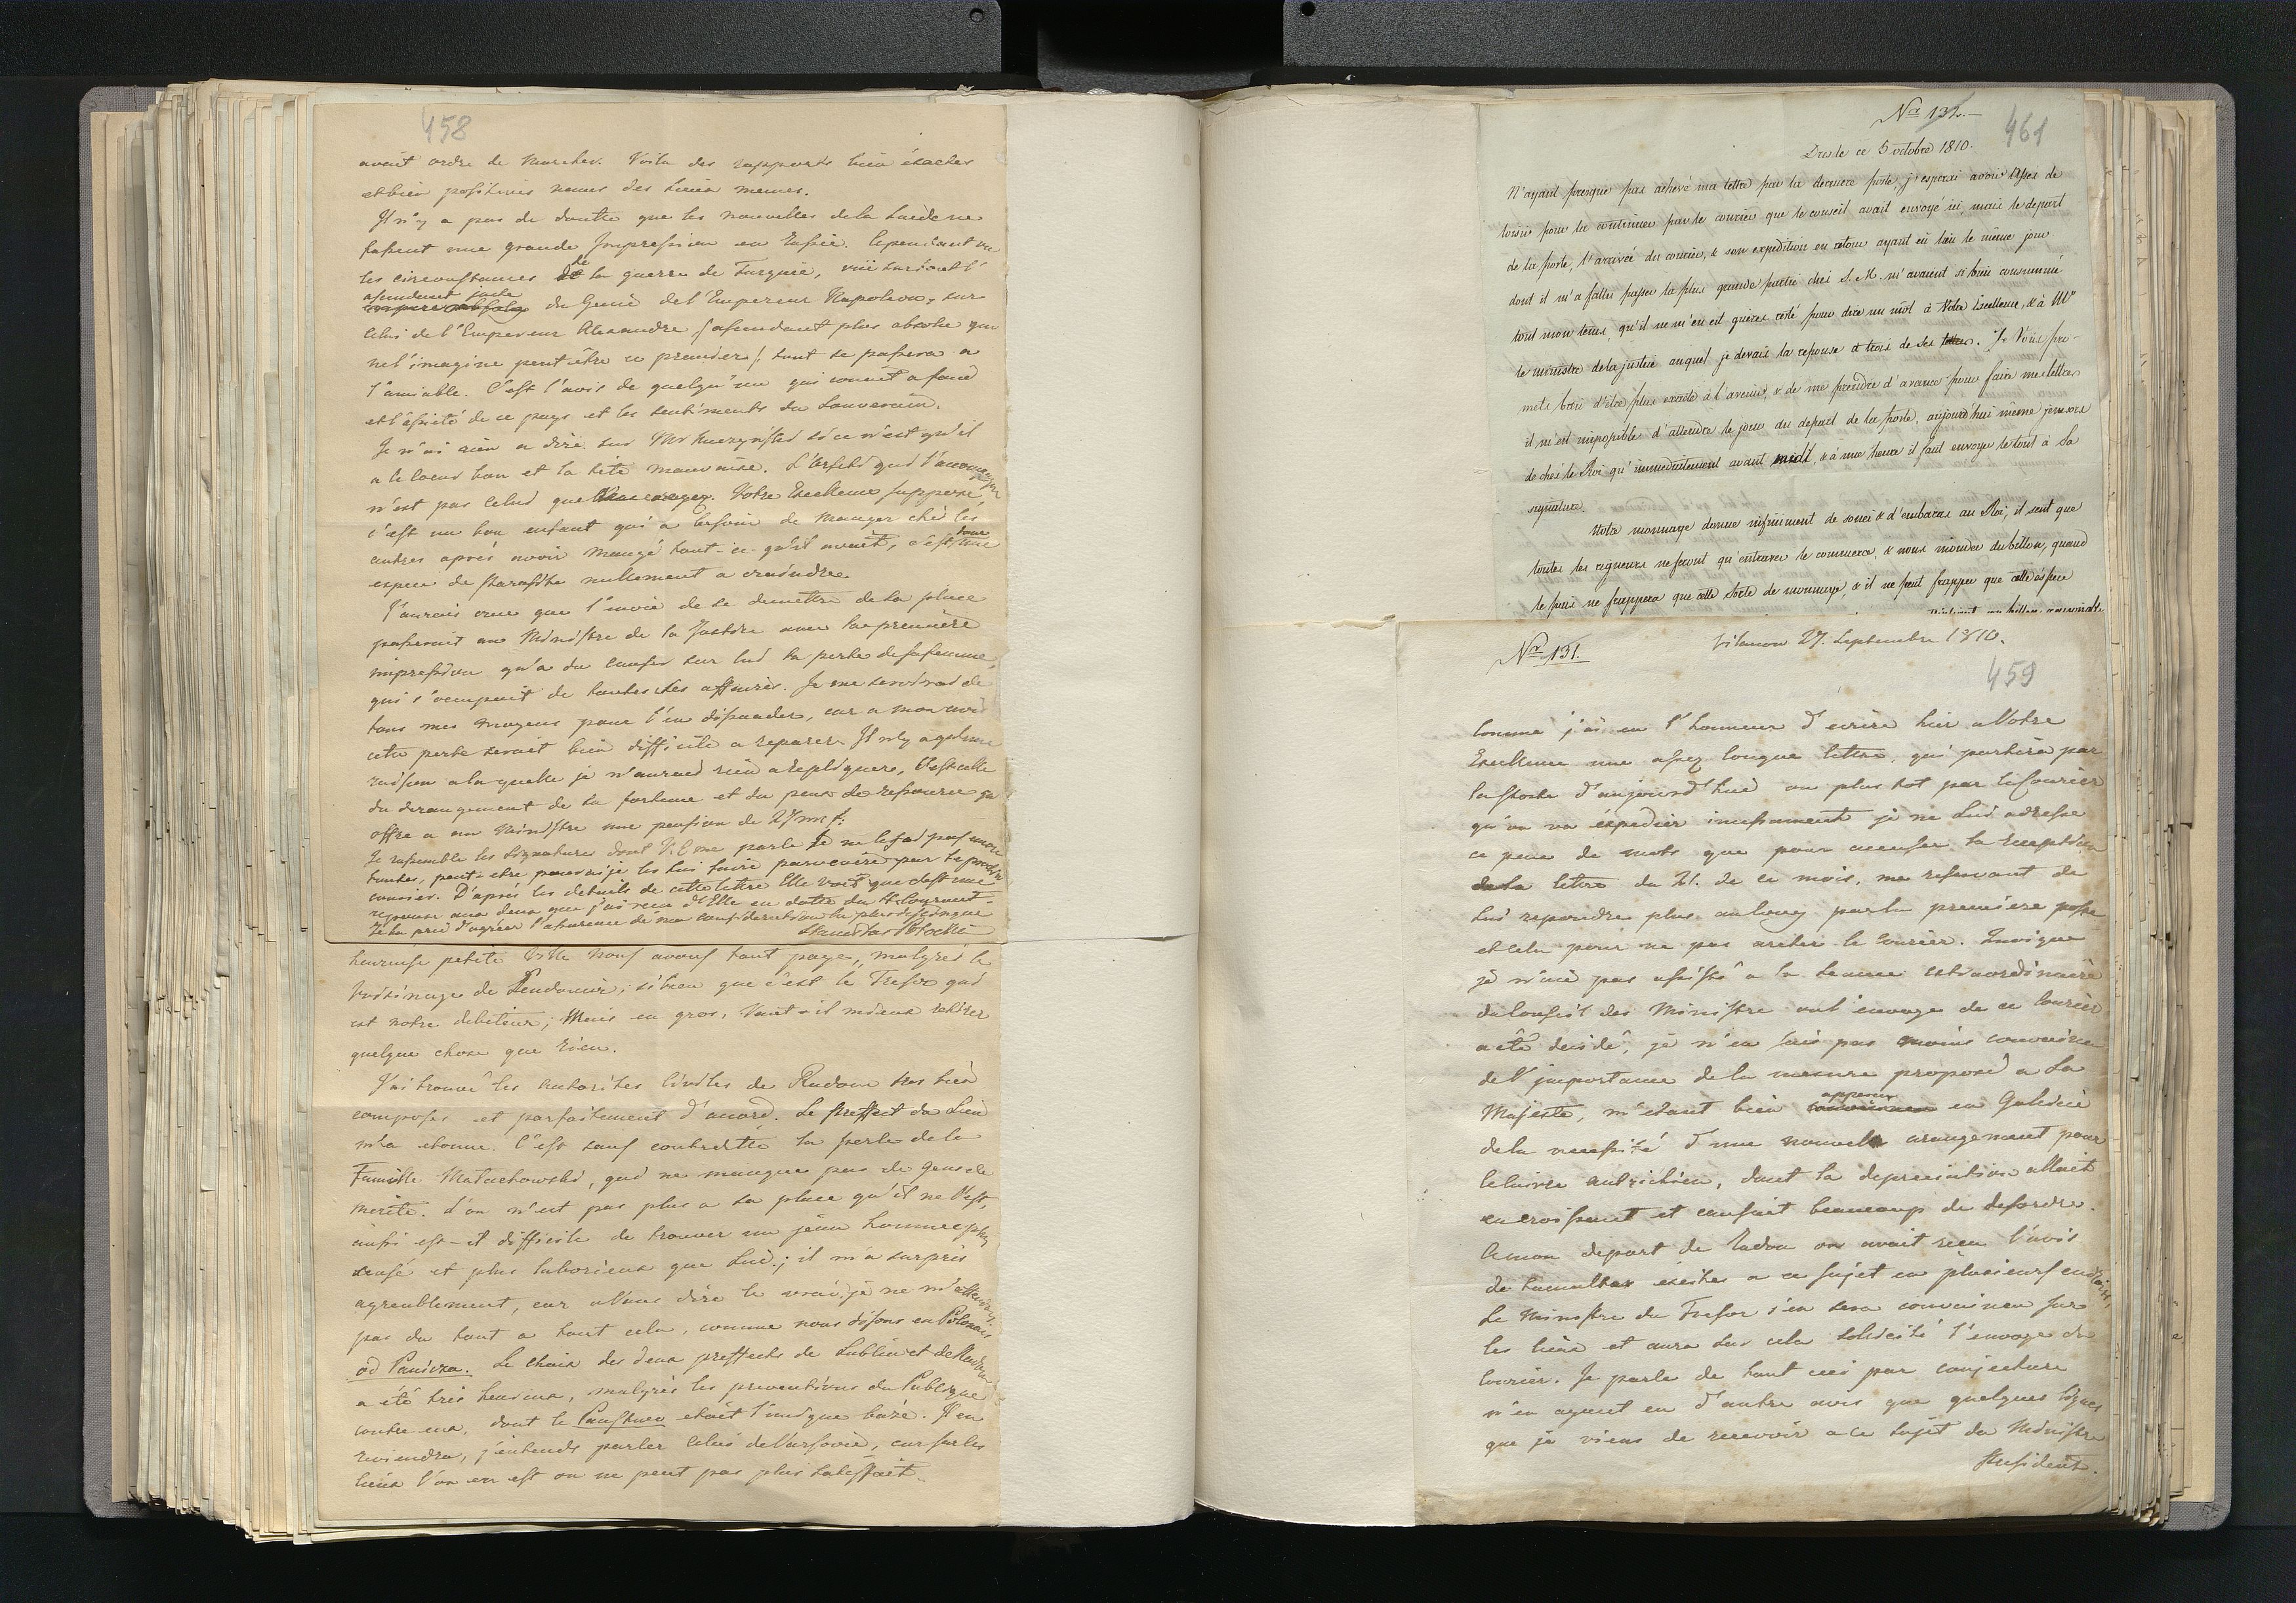 458
avait ordre de marcher. Voila des rapports bien exactes
et bien positives venus des Lieux memes.
Il n'y a pas de doutte que les nouvelles de la Suède ne
fassent une grande Impression en Russie. Cependant vu
les circonstances de la guerre de Turquie, vüe surtout l'
ascendant juste
du Genie de l'Empereur Napoleon, sur
Celui de l'Empereur Alexandre /ascendant plus absolu que
ne l'imagine peut être ce premier/ tout se passera a
l'amiable. C'est l'avis de quelqu'un qui connait a fond
et l'assieté de ce pays et les sentiments du Souverain.
Je n'ai rien a dire sur Mr Kuczynski si ce n'est qu'il
a le Coeur bon et la tête mauvaise. L'Orsetti qui l'accompagne
n'est pas Celui que Votre Excellence suppose,
c'est un bon enfant qui a besoin de manger chés les
autres aprés avoir mangé tout-ce-qu'il avait, c'est donc une
espece de Parasite nullement a craindre.
J'aurais crue que l'envie de se demettre de la place
passerait au Ministre de la Justice avec la premiere
impression qu'a du causer sur lui la perte de sa femme,
qui s'occupait de toutes ses affaires. Je me servirai de
tous mes moyens pour l'en dissuader, car a mon avis
cette perte serait bien difficile a reparer. Il n'y a qu'une
raison a la quelle je n'aurai rien a repliquere, C'est celle
du derangement de sa fortune et du peux de ressource qu'
offre a un Ministre une pension de 27 m f:
Je rassemble les signatures dont V. E me parle Je ne les ai pas encore
toutes, peut-etre pourrai je les lui faire parvenire par le prochain
courier. D'aprés les details de cette lettre Elle voit que c'est une
reponse aux deux que j'ai recu d'Elle en datte du 14 Courant.
Je la prie d'agréer l'assurence de ma consideration la plus distinguée
Stanislas Potocki
heureuse petite Ville nous avons tout paye, malgrés le
Voisinage de Sendomir; si bien que c'est le Tresor qui
est notre debiteur; Mais en gros, Vaut-il mieux retirer
quelque chose que rien.
J'ai trouvé les autorites Civiles de Radom tres bien
composés et parfaitement d'accord. Le Preffect du Lieu
m'a etonné. C'est sans contredite la perle de la
Famille Małachowski, qui ne manque pas de gens de
merite. L'on n'est pas plus a sa place qu'il ne l'est,
aussi est-it difficile de trouver un jeune homme plus
sensé et plus laborieux que Lui; il m'a surpris
agreablement, car a Vous dire le vrai je ne m'attendais
pas du tout a tout cela, comme nous disons en Polonais
od Panicza. Le choix des deux preffects de Lublin et de Radom
a été tres heureux, malgrés les preventions du Publique
contre eux, dont le Panstwo etait l'unique baze. Il en
reviendra, j'entends parler Celui de Varsovie, car sur les
lieux l'on en est on ne peut pas plus satisffait.
Nr 132.
461
Dresde ce 5 octobre 1810.
N'ayant presque pas achevé ma lettre par la derniere poste, j'esperai avoir assés de
loisir pour la continuer par le courier que le conseil avait envoyé ici, mais le depart
de la poste, l'arrivée du courier, & son expedition en retour ayant eû lieu le même jour
dont il m'a fallu passer la plus grande partie chés S. M. m'avaient si bien consummé
tout mon tems, qu'il ne m'en est guères resté pour dire un mot à Votre Excellence, & à Mr
le ministre de la justice auquel je devais la reponse à trois de ses lettres. Je Vous pro-
mets bien d'etre plus exacte à l'avenir, & de me prendre d'avance pour faire mes lettres
il m'est impossible d'attendre le jour du depart de la poste, aujourd'hui même je ne sors
de chés le Roi qu'immediatement avant midi, & à une heure il faut envoyer le tout à Sa
signature.
Notre monnaye donne infiniment de souci & d'embaras au Roi, il sent que
toutes les rigueurs ne feront qu'entraver le commerce, & nous inonder du billon, quand
le païs ne frappera que cette sorte de monnaye, & il ne peut frapper que cette éspece
Nr 131.
Vilanow 27. Septembre 1810.
459
Comme j'ai eu l'honneur d'ecrire hier a Votre
Excellence une assez longue lettre, qui partira par
la Poste d'aujourd'hui ou plus tot par le Courier
qu'on va expedier incessament je ne Lui adresse
ce peux de mots que pour accuser la reception
de la lettre du 21. de ce mois, me reservant de
Lui repondre plus aulong par la premiere poste
et cela pour ne pas arreter le Courier. Quoique
je n'aie pas assisté a la seance extraordinaire
du Conseil des Ministre ou l'envoye de ce Courier
a été decidé, je n'en suis pas moins convaincu
de l'importance de la mesure proposé a Sa
Majesté, m'etant bien apperçu en Galicie
de la necessité d'une nouvelle arangement pour
le Cuivre autrichien, dont la depreciation allait
en croissant et causait beaucoup de desordre.
A mon depart de Radom on avait recu l'avis
de tumultes excites a ce sujet en plusieurs endroits,
Le Ministre du Tresor s'en sera convaincu sur
les lieux et aura sur cela solicité l'envoye du
Courier. Je parle de tout ceci par conjecture
n'en ayant eu d'autre avis que quelques lignes
que je viens de recevoir a ce sujet du Ministre
President.